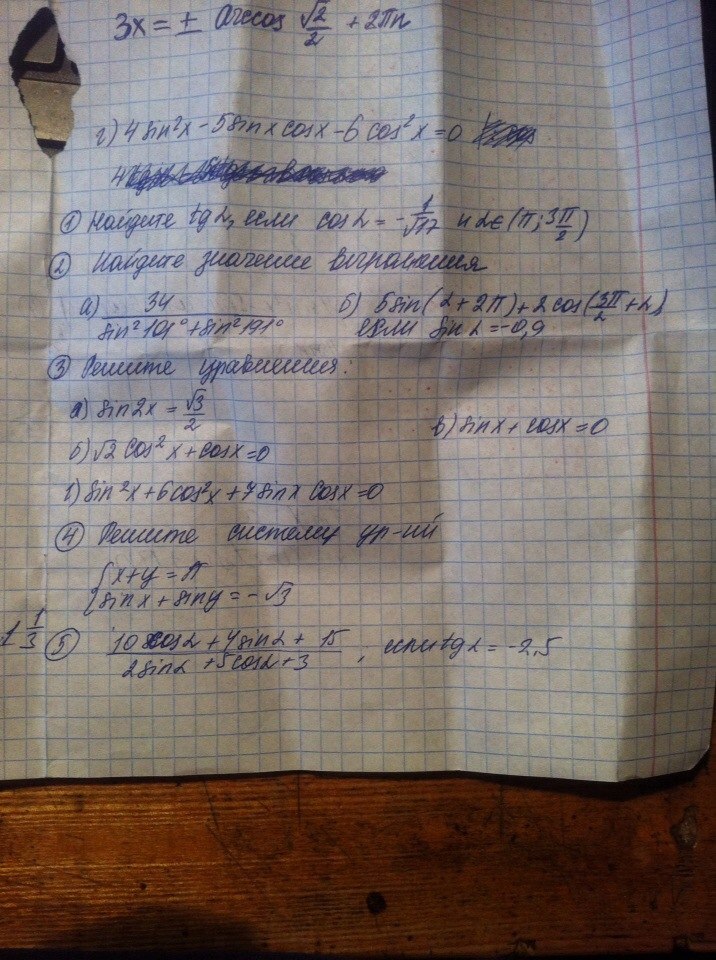 3x = ± arccos √2/2 + 2πn
г) 4 sin²x - 5 sin x cos x - 6 cos²x = 0
① Найдите tg α, если cos α = - 1/√17 и α ∈ (π; 3π/2)
② Найдите значение выражения
а) 34/(sin²101° + sin²191°) б) 5 sin(α + 2π) + 2 cos(3π/2 + α)
если sin α = -0,9
③ Решите уравнения:
а) sin 2x = √3/2
в) sin x + cos x = 0
б) √2 cos²x + cos x = 0
г) sin²x + 6 cos²x + 7 sin x cos x = 0
④ Решите систему ур-ий
{ x + y = π
sin x + sin y = -√3
1 1/3
⑤ (10 cos α + 4 sin α + 15)/(2 sin α + 5 cos α + 3), если tg α = -2,5